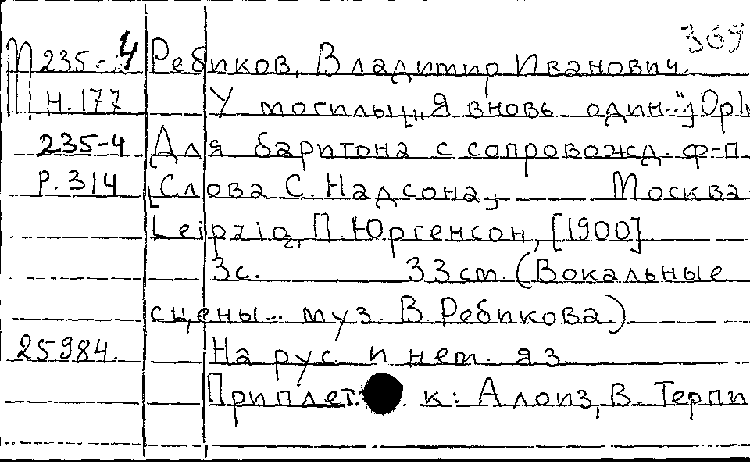 369
П 235-4 Ребиков, Владимир Иванович.
Н.177 У могилы: „Я вновь один..."; Op
235-4 Для баритона с сопровожд. ф-п.
Р.314 [Слова С. Надсона,- Москва
Leipzig, П. Юргенсон, [1900]
3с. 33 cm. (Вокальные
сцены.. муз. В. Ребикова.)
25984. На рус. и нем. яз
Приплет. к: Алоиз, В. Терпи